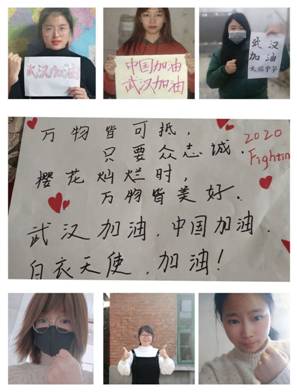 武汉加油
中国加油
武汉加油
武汉
加油
万物皆可抵,
只要众志诚.
2020
Fighting
樱花灿烂时,
万物皆美好.
武汉加油.中国加油.
白衣天使.加油!